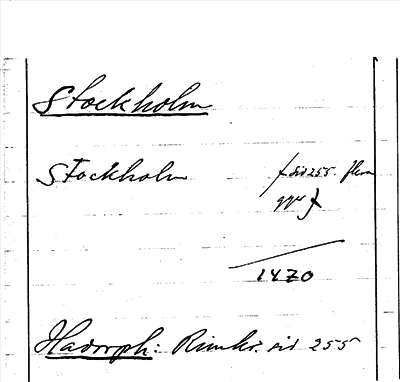 Stockholm
Stockholm f sid 255. flera
ggr f
1470
Hadorph: Rimkr. sid 255